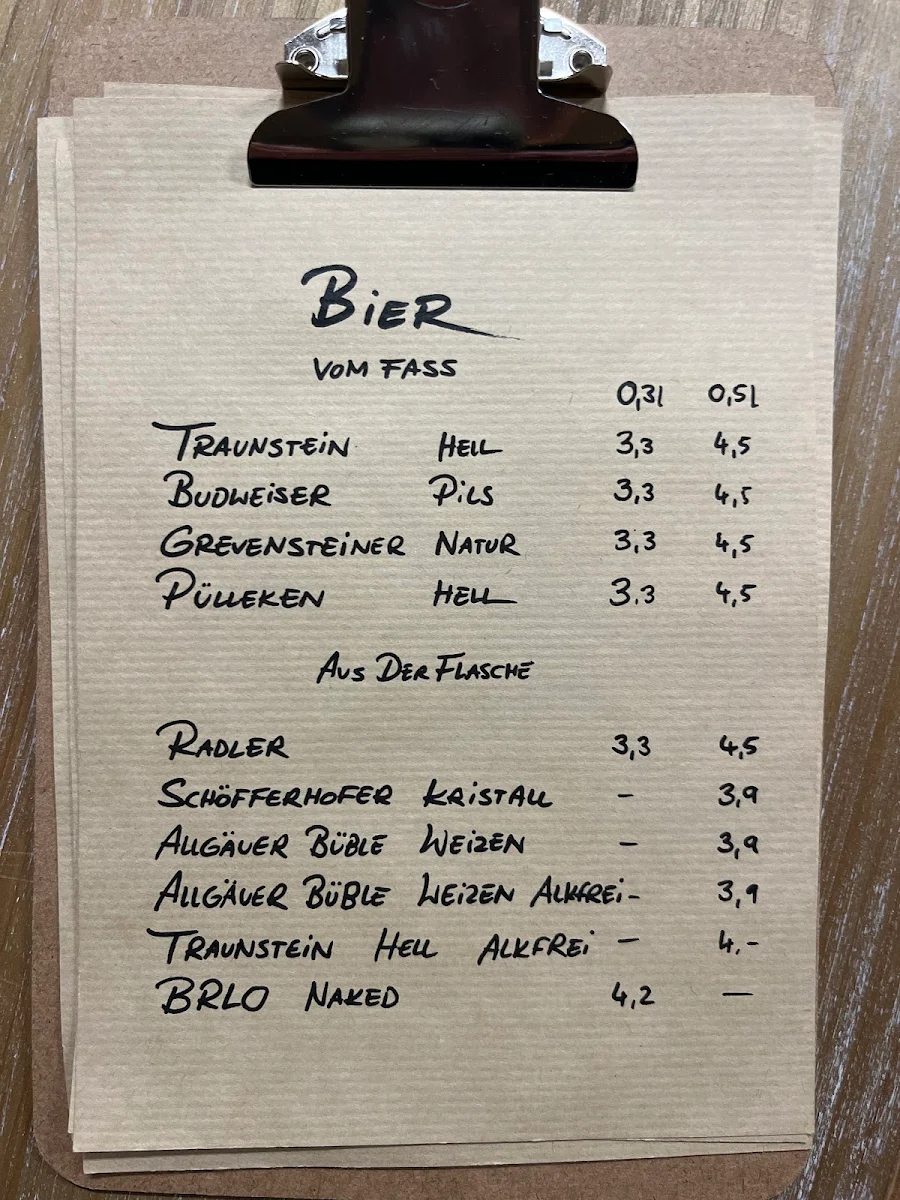 BiER
VOM FASS
0,3l 0,5l
TRAUNSTEiN HELL 3,3 4,5
BUDWEiSER PiLS 3,3 4,5
GREVENSTEiNER NATUR 3,3 4,5
PÜLLEKEN HELL 3.3 4,5
AUS DER FLASCHE
RADLER 3,3 4,5
SCHÖFFERHOFER KRiSTALL - 3,9
ALLGÄUER BÜBLE WEiZEN - 3,9
ALLGÄUER BÜBLE WEiZEN ALKFREi - 3,9
TRAUNSTEiN HELL ALKFREi - 4.-
BRLO NAKED 4,2 -